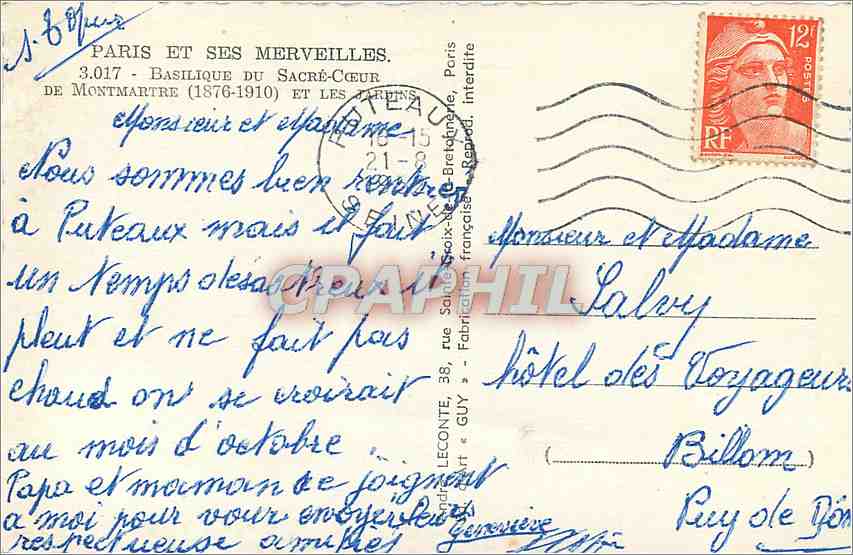 PARIS ET SES MERVEILLES.
3.017 - BASILIQUE DU SACRÉ-CŒUR
DE MONTMARTRE (1876-1910) ET LES JARDINS
Monsieur et Madame
Nous sommes bien rentrer
à Puteaux mais il fait
un temps desastreux il
pleut et ne fait pas
chaud on se croirait
au mois d'octobre.
Papa et maman se joignent
a moi pour vour envoyer leurs
respectueuse amitiés
Geneviève
PUTEAUX
16-15
21-8
SEINE
LECONTE, 38, rue Sainte-Croix-de-la-Bretonnerie, Paris
d'Art « GUY » - Fabrication française - Reprod. interdite
12F
POSTES
RF
Monsieur et Madame
Salvy
hôtel des Voyageurs
Billom
Puy de Dôm
CPAPHIL